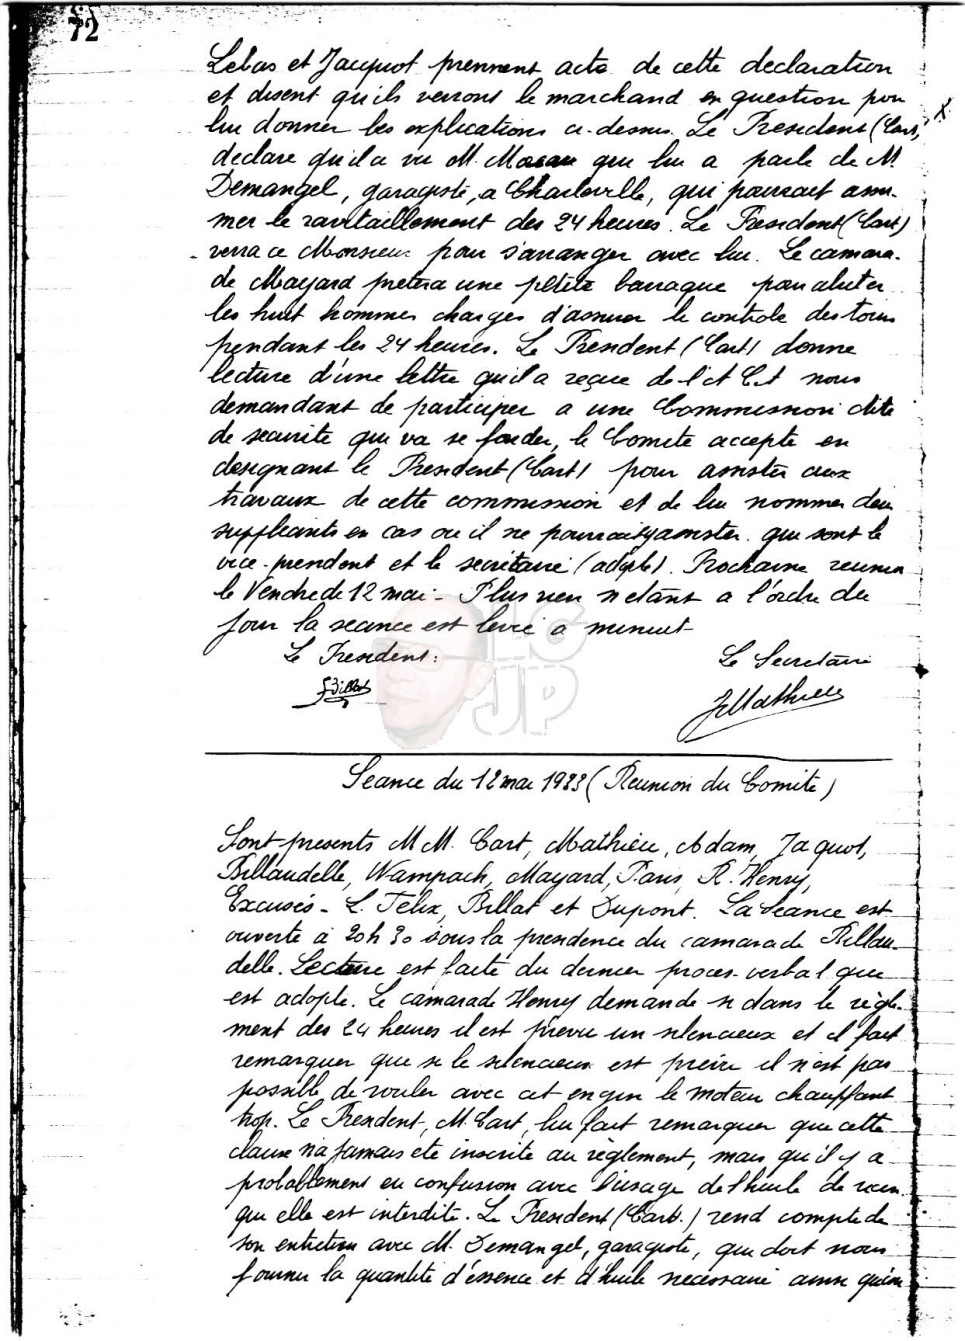 72
Lebas et Jacquot prennent acte de cette declaration
et disent qu'ils verront le marchand en question pour
lui donner les explications ci-dessus. Le President (Cart)
declare qu'il a vu M. qui lui a parlé de M
Demangel, garagiste, a Charleville, qui pourrait assu-
mer le ravitaillement des 24 heures. Le President (Cart)
verra ce Monsieur pour s'arranger avec lui. Le camara-
de Mayard pretera une petite baraque pour abriter
les huit hommes charges d'assurer le controle des tours
pendant les 24 heures. Le President (Cart) donne
lecture d'une lettre qu'il a reçue de l'A C A nous
demandant de participer a une Commission dite
de securite qui va se fonder, le Comite accepte en
designant le President (Cart) pour assister aux
travaux de cette commission et de lui nommer deux
suppleants en cas ou il ne pourrait y assister. qui sont le
vice-president et le secretaire (adopté). Prochaine reunion
le Vendredi 12 mai - Plus rien n'etant a l'ordre du
jour la seance est levée a minuit -
Le President:
Le Secretaire
Billat
JMathieu
LG
JP
Seance du 12 mai 1933 (Reunion du Comite)
Sont presents M M. Cart, Mathieu, Adam, Jaquot,
Billaudelle, Wampach, Mayard, Paris, R. Henry,
Excusés - L. Felix, Billat et Dupont. La Seance est
ouverte à 20h 30 sous la presidence du camarade Billau-
delle. Lecture est faite du dernier proces-verbal qui
est adopte. Le camarade Henry demande si dans le règle-
ment des 24 heures il est prevu un silencieux et il fait
remarquer que si le silencieux est prevu il n'est pas
possible de rouler avec cet engin le moteur chauffant
trop. Le President, M. Cart, lui fait remarquer que cette
clause n'a jamais été inscrite au règlement, mais qu'il y a
probablement eu confusion avec l'usage de l'huile de ricin
qui elle est interdite. Le President (Cart.) rend compte de
son entretien avec M. Demangel, garagiste, qui doit nous
fournir la quantité d'éssence et d'huile necessaire ainsi qu'un